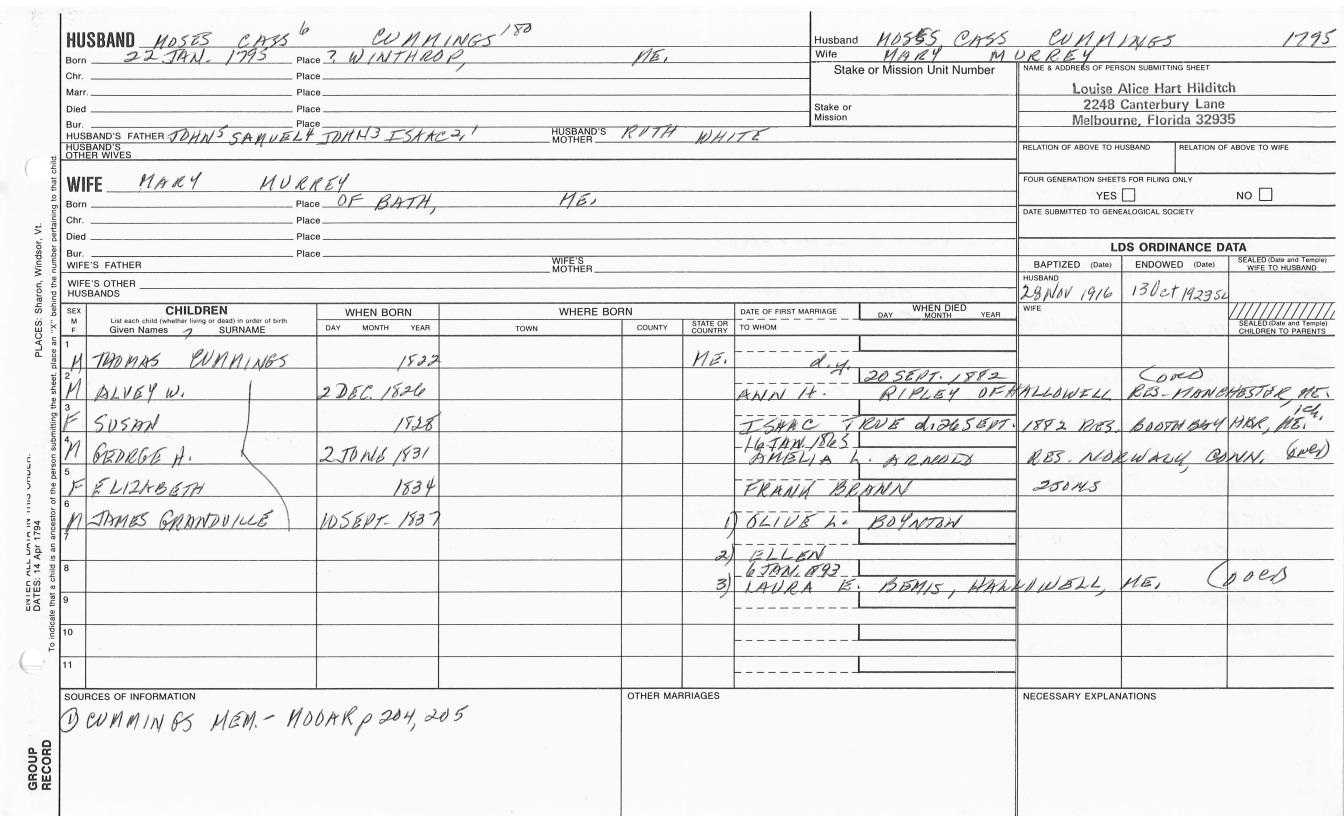 HUSBAND MOSES CASS 6 CUMMINGS 180
Born 22 JAN. 1795 Place ? WINTHROP, ME.
Chr. Place
Marr. Place
Died Place
Bur. Place
HUSBAND'S FATHER JOHN5 SAMUEL4 JOHN3 ISAAC2,1 HUSBAND'S MOTHER RUTH WHITE
HUSBAND'S OTHER WIVES
Husband MOSES CASS CUMMINGS 1795
Wife MARY MURREY
Stake or Mission Unit Number
Stake or Mission
NAME & ADDRESS OF PERSON SUBMITTING SHEET
Louise Alice Hart Hilditch
2248 Canterbury Lane
Melbourne, Florida 32935
RELATION OF ABOVE TO HUSBAND RELATION OF ABOVE TO WIFE
FOUR GENERATION SHEETS FOR FILING ONLY
YES NO
DATE SUBMITTED TO GENEALOGICAL SOCIETY
WIFE MARY MURREY
Born Place OF BATH, ME.
Chr. Place
Died Place
Bur. Place
WIFE'S FATHER WIFE'S MOTHER
WIFE'S OTHER HUSBANDS
LDS ORDINANCE DATA
BAPTIZED (Date) ENDOWED (Date) SEALED (Date and Temple) WIFE TO HUSBAND
HUSBAND
28 NOV 1916 13 Oct 1923 SL
WIFE
SEALED (Date and Temple) CHILDREN TO PARENTS
SEX M F
CHILDREN
List each child (whether living or dead) in order of birth
Given Names 7 SURNAME
WHEN BORN
DAY MONTH YEAR
WHERE BORN
TOWN COUNTY STATE OR COUNTRY
DATE OF FIRST MARRIAGE
TO WHOM
WHEN DIED
DAY MONTH YEAR
1
M THOMAS CUMMINGS 1822 ME. d.y.
2 20 SEPT. 1882
M ALVEY W. 2 DEC. 1826 ANN H. RIPLEY OF HALLOWELL RES- MANCHESTER, ME.
3
F SUSAN 1828 ISAAC TRUE d. 26 SEPT. 1882 RES. BOOTHBAY HBR, ME. 1ch.
4 16 JAN. 1865
M GEORGE H. 2 JUNE 1831 AMELIA L. ARNOLD RES. NORWALK, CONN.
5
F ELIZABETH 1834 FRANK BRANN
6
M JAMES GRANDVILLE 10 SEPT. 1837 1) OLIVE L. BOYNTON
7
2) ELLEN
8 6 JAN. 1893
3) LAURA E. BEMIS, HALLOWELL, ME.
9
10
11
SOURCES OF INFORMATION
① CUMMINGS MEM.- MOOAR p 204, 205
OTHER MARRIAGES
NECESSARY EXPLANATIONS
PLACES: Sharon, Windsor, Vt.
DATES: 14 Apr 1794
To indicate that a child is an ancestor of the person submitting the sheet, place an "X" behind the number pertaining to that child.
GROUP RECORD